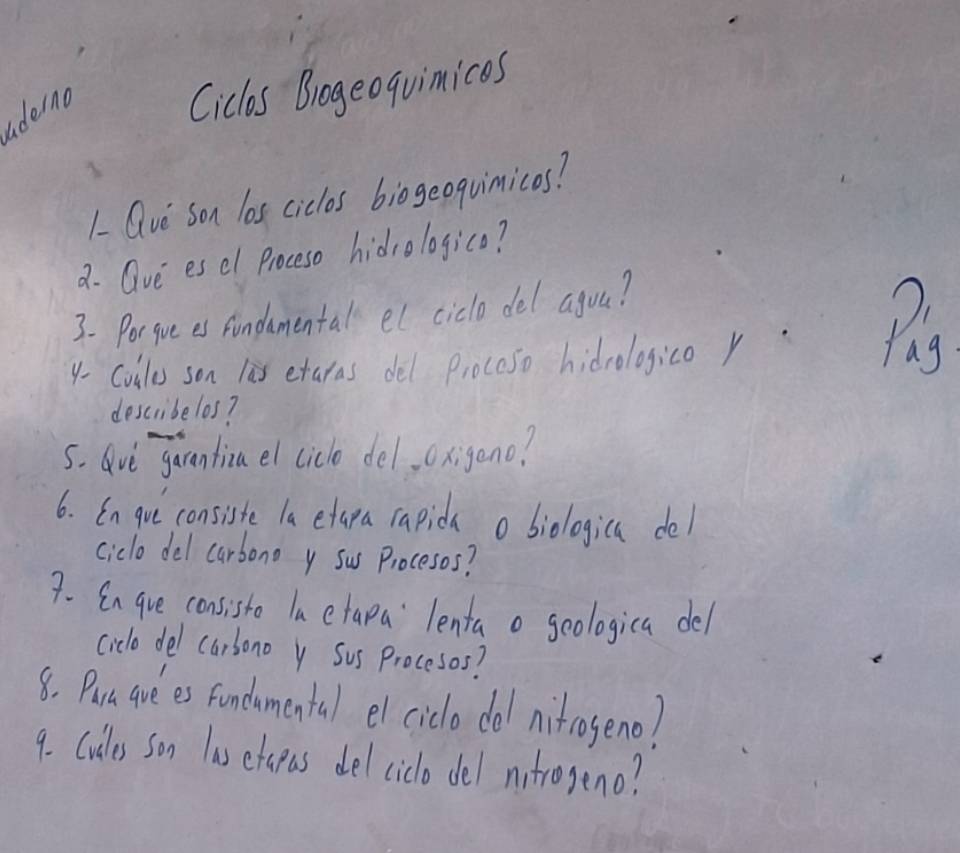 Ciclos Biogeoquimicos
1- Qué son los ciclos biogeoquimicos?
2- Qué es el Proceso hidrologico?
3- Por que es fundamental el ciclo del agua?
4- Cuáles son las etapas del Proceso hidrologico y
describelos?
5- Qué garantiza el ciclo del oxigeno?
6. En qué consiste la etapa rapida o biologica del
ciclo del carbono y sus Procesos?
7- En que consiste la etapa lenta o geologica del
ciclo del carbono y sus Procesos?
8. Para qué es fundamental el ciclo del nitrogeno?
9- Cuáles son las etapas del ciclo del nitrogeno?
Pág.